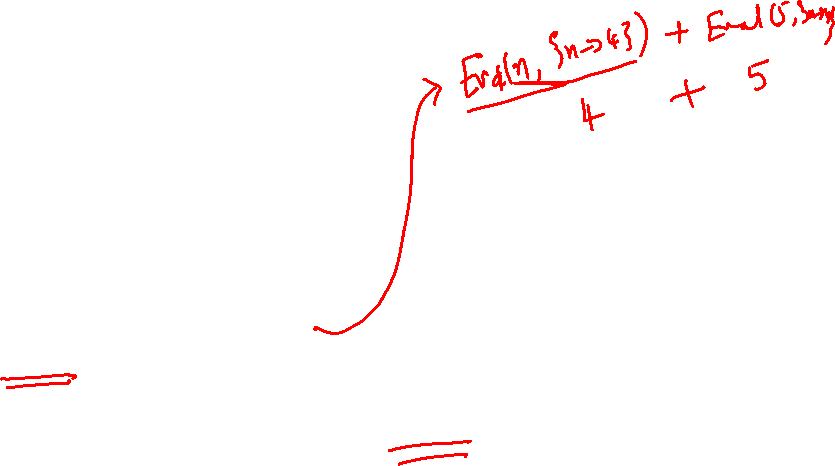 Eval(n, {n→4}) + Eval(5, {n→4})
4 + 5